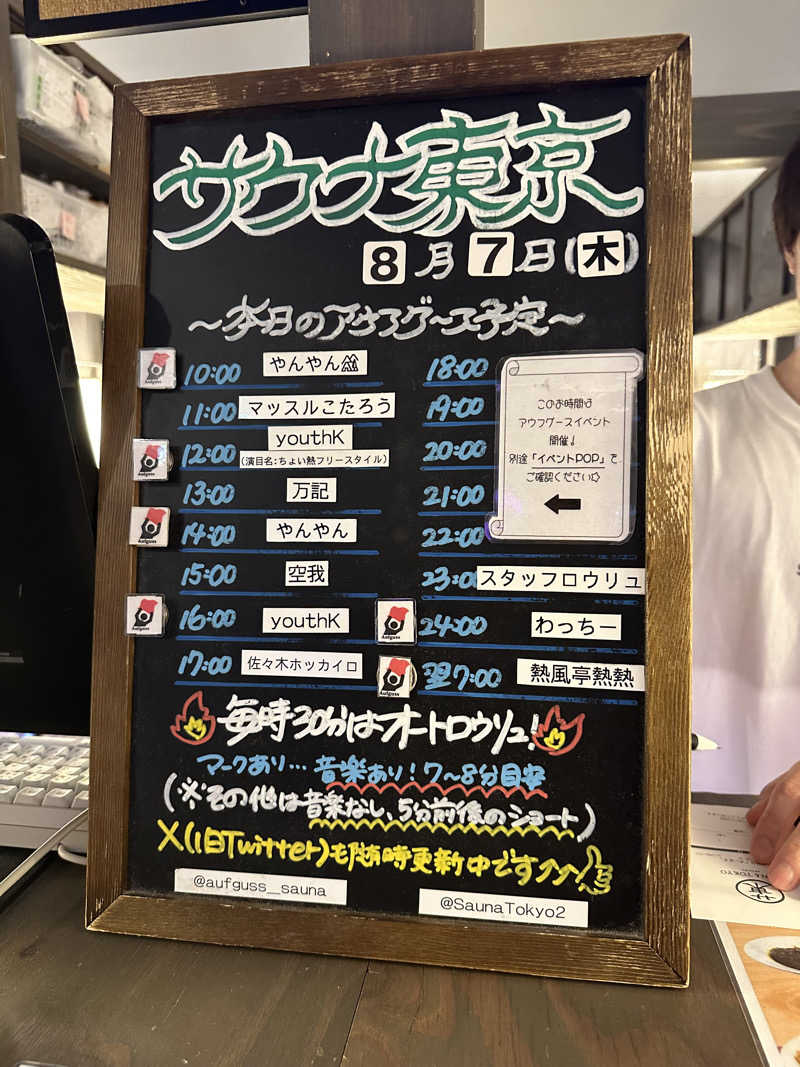 サウナ東京
8月7日(木)
～本日のアウフグース予定～
10:00 やんやん
11:00 マッスルこたろう
12:00 youthK
(演目名:ちょい熱フリースタイル)
13:00 万記
14:00 やんやん
15:00 空我
16:00 youthK
17:00 佐々木ホッカイロ
18:00
19:00
20:00
21:00
22:00
このお時間は
アウフグースイベント
開催♩
別途「イベントPOP」で
ご確認ください
23:00 スタッフロウリュ
24:00 わっちー
翌7:00 熱風亭熱熱
Aufguss
Aufguss
Aufguss
Aufguss
Aufguss
Aufguss
毎時30分はオートロウリュ!
マークあり…音楽あり!7～8分目安
(※その他は音楽なし、5分前後のショート)
X(旧Twitter)も随時更新中です↗↗
@aufguss_sauna
@SaunaTokyo2